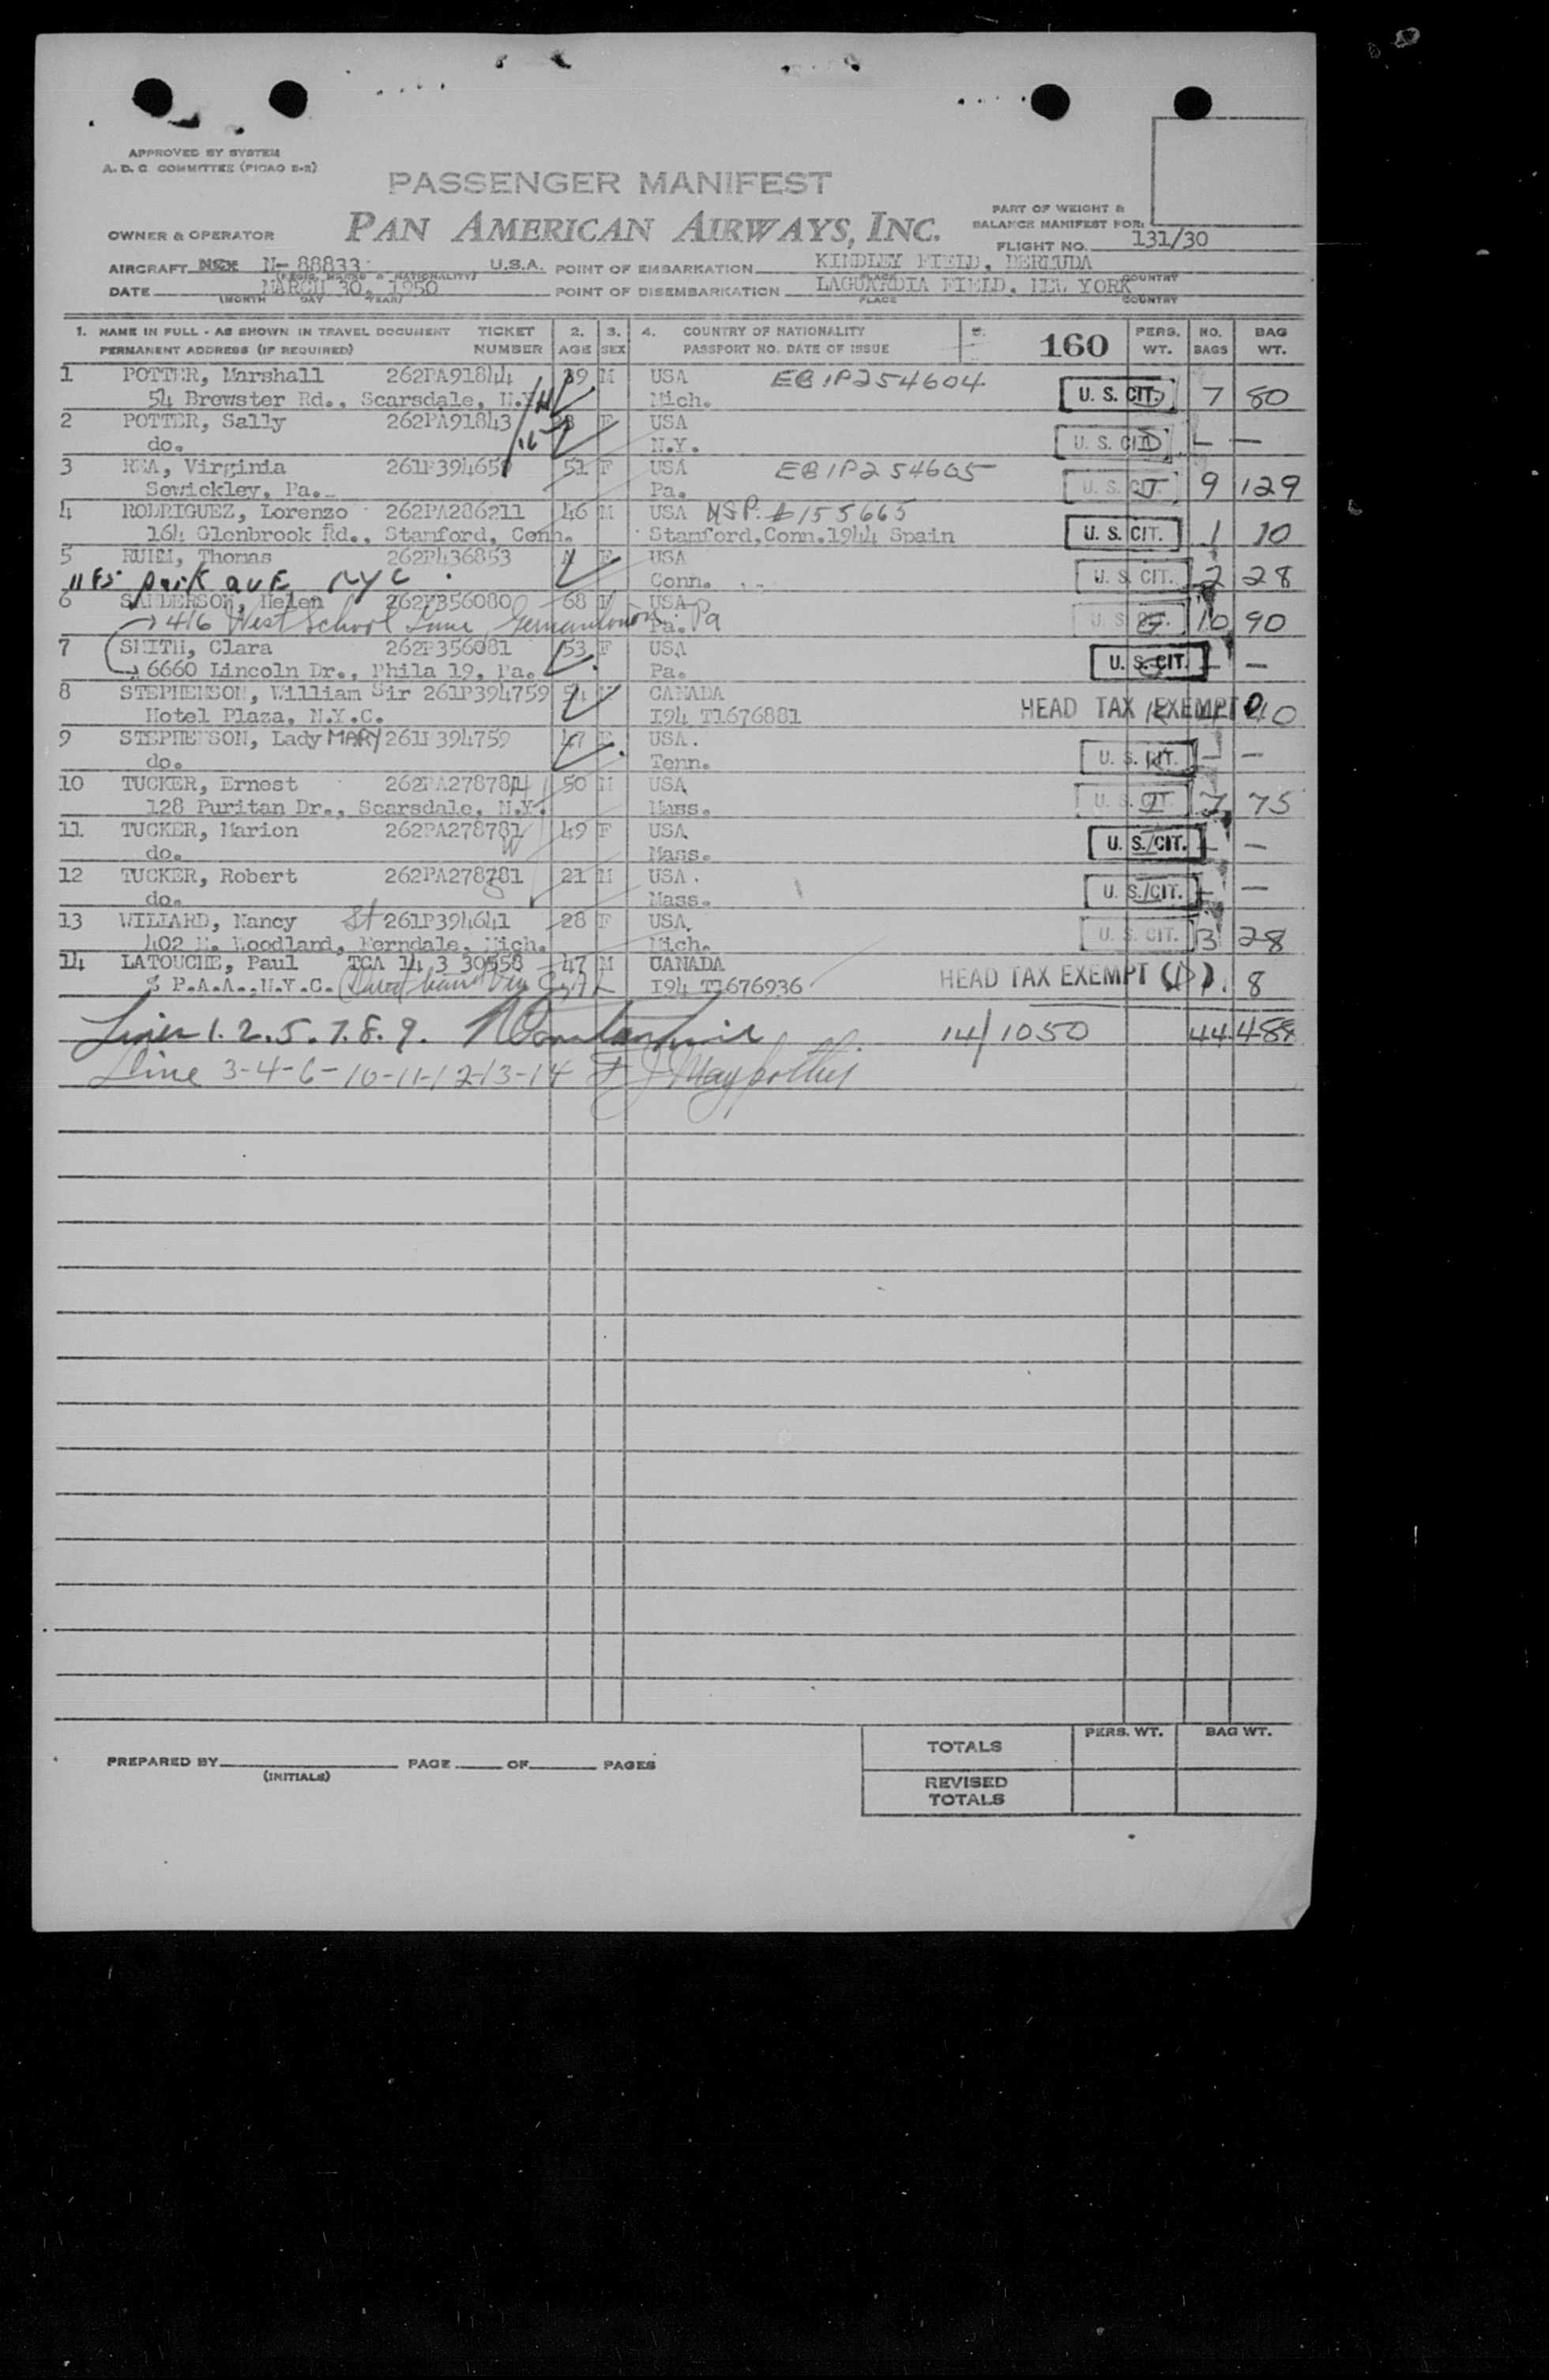 APPROVED BY SYSTEM
A. D. C. COMMITTEE (PICAO 2-2)
PASSENGER MANIFEST
PAN AMERICAN AIRWAYS, INC.
PART OF WEIGHT &
BALANCE MANIFEST FOR:
OWNER & OPERATOR
FLIGHT NO. 131/30
AIRCRAFT N- 88833 U.S.A. POINT OF EMBARKATION KINDLEY FIELD, BERMUDA
(REGIS. MARKS & NATIONALITY) PLACE COUNTRY
DATE MARCH 30, 1950 POINT OF DISEMBARKATION LAGUARDIA FIELD, NEW YORK
(MONTH DAY YEAR) PLACE COUNTRY
1. NAME IN FULL - AS SHOWN IN TRAVEL DOCUMENT TICKET 2. 3. 4. COUNTRY OF NATIONALITY 5. 160 PERS. NO. BAG
PERMANENT ADDRESS (IF REQUIRED) NUMBER AGE SEX PASSPORT NO. DATE OF ISSUE WT. BAGS WT.
1 POTTER, Marshall 262PA91844 39 M USA EB1P254604
54 Brewster Rd., Scarsdale, N.Y. Mich. U. S. CIT. 7 80
2 POTTER, Sally 262PA91843 F USA
do. N.Y. U. S. CIT. — —
3 REA, Virginia 261P394651 51 F USA EB1P254605
Sewickley, Pa. Pa. U. S. CIT. 9 129
4 RODRIGUEZ, Lorenzo 262PA286211 46 M USA #155665
164 Glenbrook Rd., Stamford, Conn. Stamford, Conn. 1944 Spain U. S. CIT. 1 10
5 Thomas 262P436853 USA
1185 Park ave NYC Conn. U. S. CIT. 2 28
6 SANDERSON, Helen 262P356080 68 F USA
416 West School Lane Germantown Pa. Pa U. S. CIT. 10 90
7 SMITH, Clara 262P356081 53 F USA
6660 Lincoln Dr., Phila 19, Pa. Pa. U. S. CIT. — —
8 STEPHENSON, William Sir 261P394759 54 M CANADA
Hotel Plaza, N.Y.C. I94 T1676881 HEAD TAX EXEMPT 40
9 STEPHENSON, Lady MARY 261P394759 47 F USA.
do. Tenn. U. S. CIT. — —
10 TUCKER, Ernest 262PA278784 50 M USA
128 Puritan Dr., Scarsdale, N.Y. Mass. U. S. CIT. 7 75
11 TUCKER, Marion 262PA278781 49 F USA
do. Mass. U. S. CIT. — —
12 TUCKER, Robert 262PA278781 21 M USA.
do. Mass. U. S. CIT. — —
13 WILLARD, Nancy St 261P394641 28 F USA.
402 W. Woodland, Ferndale, Mich. Mich. U. S. CIT. 3 28
14 LATOUCHE, Paul TCA 14 3 30558 47 M CANADA
% P.A.A., N.Y.C. I94 T1676936 HEAD TAX EXEMPT (1) 1. 8
Lines 1. 2. 5. 7. 8. 9. 14/1050 44 488
Line 3-4-6-10-11-12-13-14
PREPARED BY PAGE OF PAGES
(INITIALS)
PERS. WT. BAG WT.
TOTALS
REVISED
TOTALS